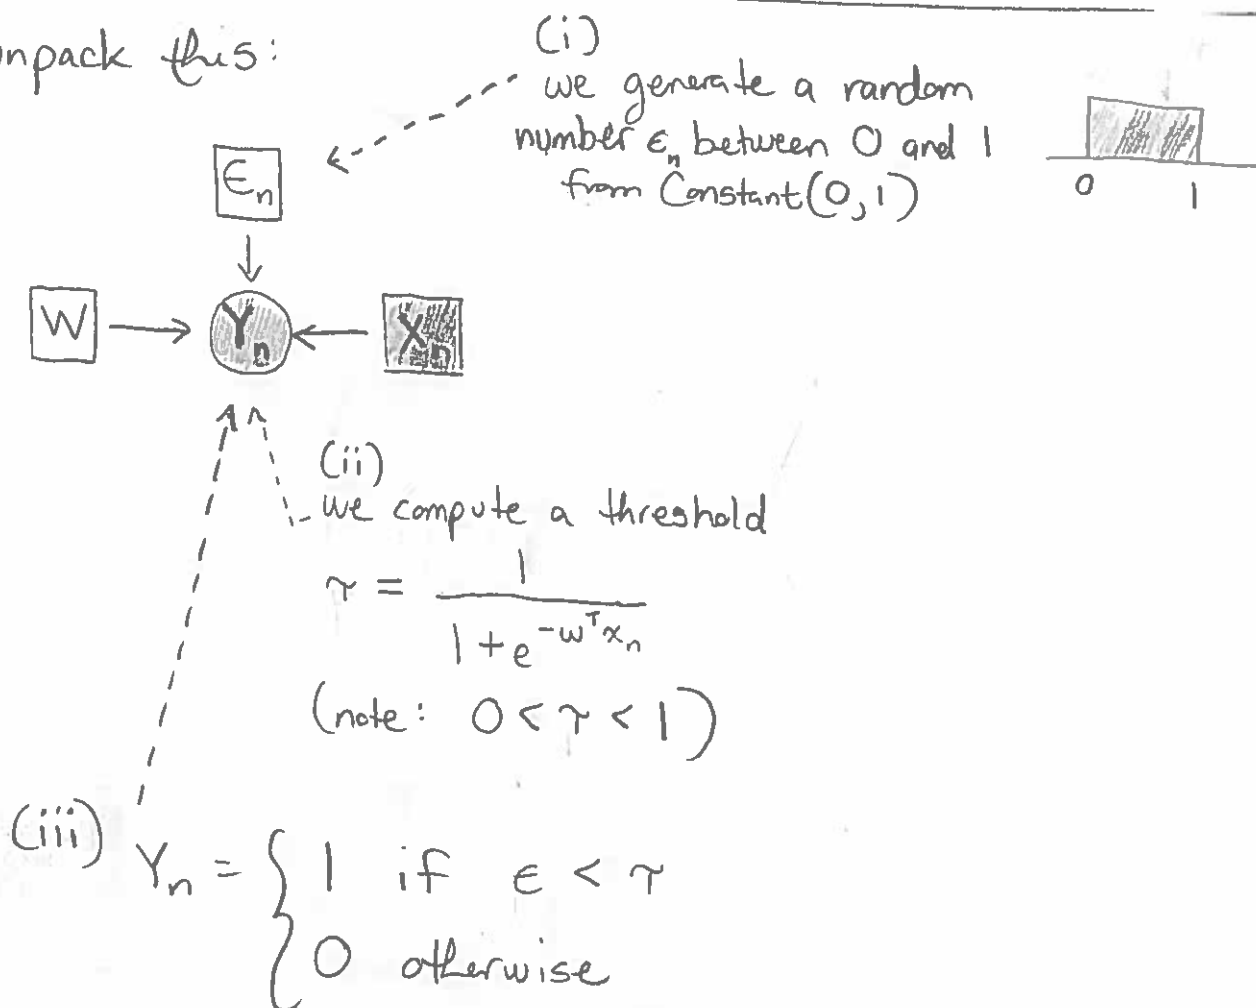 unpack this:
(i)
we generate a random
number ϵₙ between 0 and 1
from Constant(0,1)
0 1
ϵₙ
W
Yₙ
Xₙ
(ii)
we compute a threshold
τ = 1 / (1 + e^(-wᵀxₙ))
(note: 0 < τ < 1)
(iii)
Yₙ = { 1 if ϵ < τ
0 otherwise